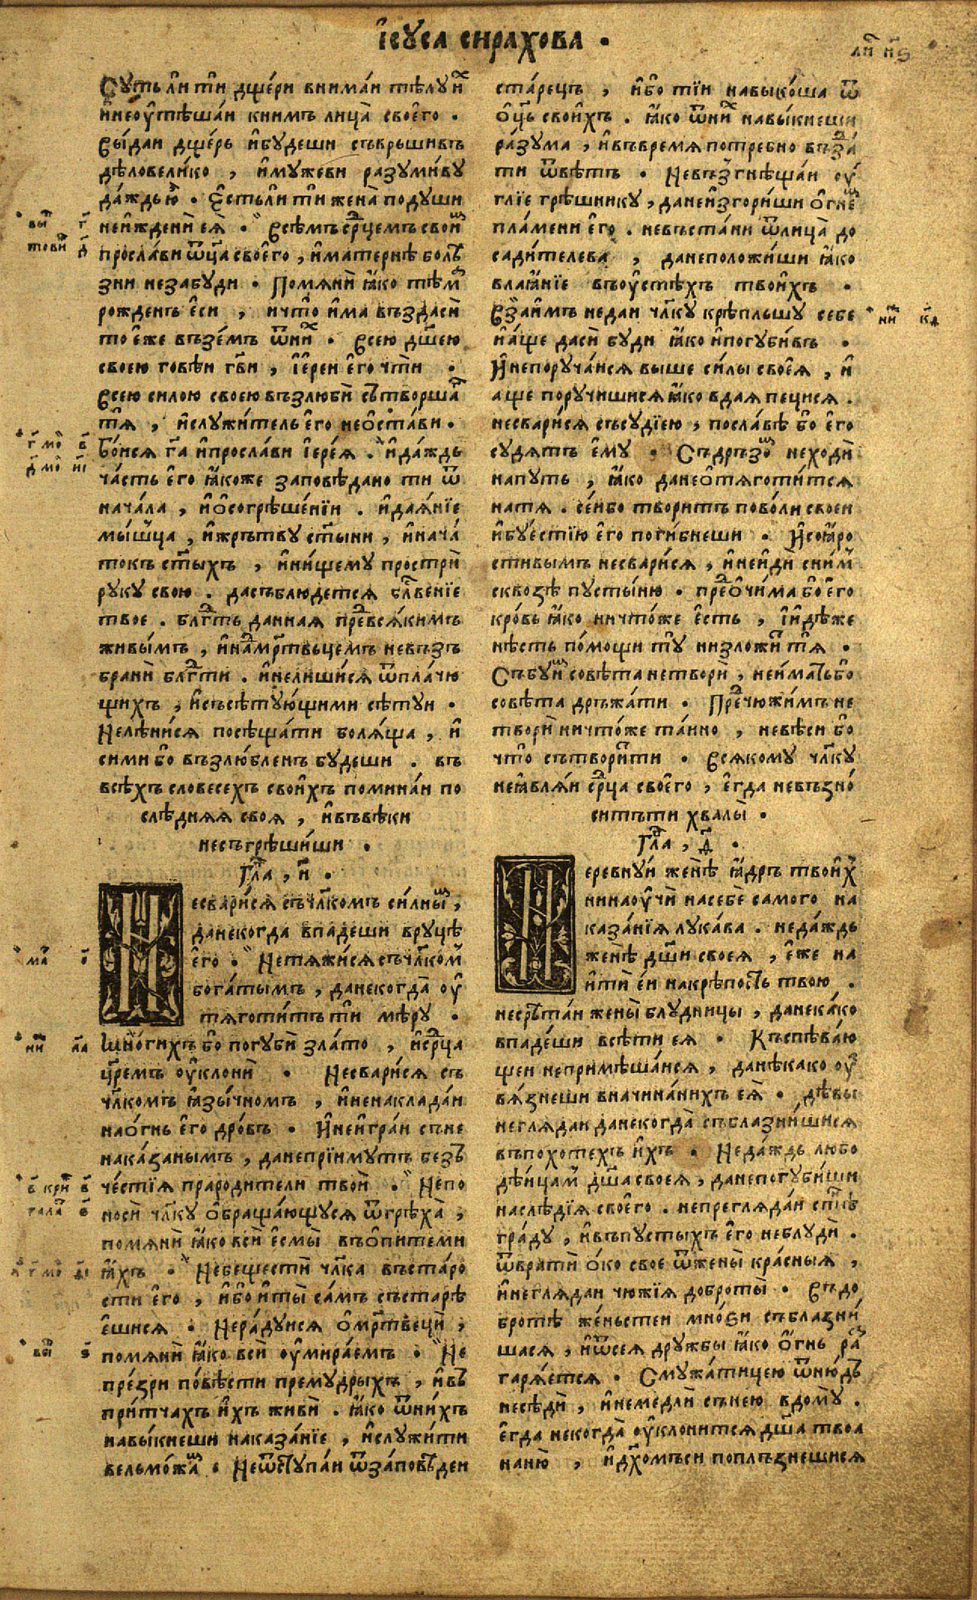 І҆сꙋса сирахова .
Сꙋть ли ти дщери внимаи тѣлꙋ и҆х
и҆неоутѣшаи книмъ лица своего .
Выдаи дщерь и҆бꙋдеши съвръшивъ
дѣловелико , и҆мꙋжеви разꙋмивꙋ
даждь ю҆ . Єстьли ти жена подꙋши
неижденѝ еѧ . Всѣмъ срцемъ свои
прослави ѿца своего , и҆матернѣ болѣ
зни незабꙋди . Помѧни ꙗко тѣм
рожденъ еси , ичто има въздаси
то еже възе́мъ ѿни . Всею дшею
своею говѣи гви , І҆ереи его чти .
Всею силою своею възлюби сътворша
тѧ , и҆слꙋжитель его неѡстави .
Боисѧ га и҆прослави І҆ереѧ . и҆даждь
часть его ꙗкоже заповѣдано ти ѿ
начала , и҆ѡсогрѣшенїи . и҆даѧнїе
мышца , и҆жрътвꙋ стыни , и҆нача
токъ стыхъ , и҆нищемꙋ простри
рꙋкꙋ свою . дасъблюдетсѧ блвенїе
твое . блгть даннаѧ превсѧкимъ
живымъ , и҆намртвьцемъ невъзъ
брани блгти . и҆нелишисѧ ѿплачю
щихъ , и҆съсѣтꙋющими сѣтꙋи .
Нелѣнисѧ посѣщати болѧща , и҆
сими бо възлюбленъ бꙋдеши . въ
всѣхъ словесехъ своихъ поминаи по
слѣднѧѧ своѧ , и҆въвѣки
несъгрѣшиши .
Гла , и҃ .
Несварисѧ съчлкомъ силны ,
данекогда впадеши врꙋцѣ
его . Нетѧжисѧ съчлком
богатымъ , данекогда оу
тѧготитъ ти мѣрꙋ .
Многихъ бо погꙋби злато , и҆срца
цремъ оуклони . Несварисѧ съ
члкомъ ꙗзычномъ , и҆ненакладаи
наогнь его дровъ . И҆неиграи съне
наказанымъ , данепрїимꙋтъ безъ
честїѧ прародители твои . Непо
носи члкꙋ ѡбращающꙋсѧ ѿгрѣха ,
помѧни ꙗко вси есмы въѡпитеми
ꙗхъ . Небещести члка въстаро
сти его , и҆бо и҆ты самъ състарѣ
ешисѧ . Нерадꙋисѧ ѡмртвеци ,
помѧни ꙗко вси оумираемъ . Не
презри повѣсти премꙋдрыхъ , и҆въ
притчахъ ихъ живи . ꙗко ѿнихъ
навыкнеши наказанїе , и҆слꙋжити
вельможа . Неѿстꙋпаи ѿзаповѣдеи
старецъ , и҆бо тїи навыкоша ѿ
ѡць своихъ . ꙗко ѿни навыкнеши
разꙋма , и҆въвремѧ потребно възда
ти ѿвѣтъ . Невъзгнѣщаи оу
глїе грѣшникꙋ , данеизгориши огне
пламени его . невъстани ѿлица до
садителева , данеположиши ꙗко
влаꙗнїе въоустѣхъ твоихъ .
Взаимъ недаи члкꙋ крѣпльшꙋ себе
и҆аще даси бꙋди ꙗко и҆погꙋбивъ .
И҆непорꙋчаисѧ выше силы своеѧ , и҆
аще порꙋчишисѧ ꙗко вдаѧ пецисѧ .
несварисѧ съсꙋдїею , послабѣ бо его
сꙋдѧтъ емꙋ . Съдръзо неходи
напꙋть , ꙗко данеѡтѧготитсѧ
натѧ . сеибо творитъ поволи своеи
и҆бꙋестїю его погибнеши . И҆соꙗро
стивымъ несварисѧ , и҆неиди сним
сквозѣ пꙋстыню . преочима бо его
кровь ꙗко ничтоже есть , идѣже
нѣсть помощи тꙋ низложи тѧ .
Събꙋи совѣта нетвори , неиматьбо
совѣта држати . Пречюжимъ не
твори ничтоже таино , невѣси бо
что сътворити . Всѧкомꙋ члкꙋ
неꙗвлѧи срца своего , егда невъзно
ситъти хвалы .
Гла , ѳ҃ .
Неревнꙋи женѣ ꙗдръ твоих
нинаоучи насебе самого на
казанїѧ лꙋкава . недаждь
женѣ дши своеѧ , еже на
ити еи накрѣпость твою .
несрѣтаи жены блꙋдницы , данекако
впадеши всѣти еѧ . Къспѣваю
щеи непримѣшаисѧ , данѣкако оу
вѧзнеши вначинанихъ еѧ . дѣвы
неглѧдаи данекогда съблазнишисѧ
въпохотехъ ихъ . Недаждь любо
дѣицам дша своеѧ , данепогꙋбиши
наслѣдїѧ своего . непреглѧдаи стпъ
градꙋ , и҆въпꙋстыхъ его неблꙋди .
ѿврати око свое ѿжены красныѧ ,
и҆неглѧдаи чюжїѧ доброты . Въдо
бротѣ женьстеи мноѕи съблазни
шасѧ , и҆ѿсеѧ дрꙋжбы ꙗко огнь ра
гарѧетсѧ . Смꙋжатицею ѿнюдъ
несѣди , и҆немедли сънею вдомꙋ .
егда некогда оуклонитсѧ дша твоа
наню , и҆дхомъси поплъзнешисѧ